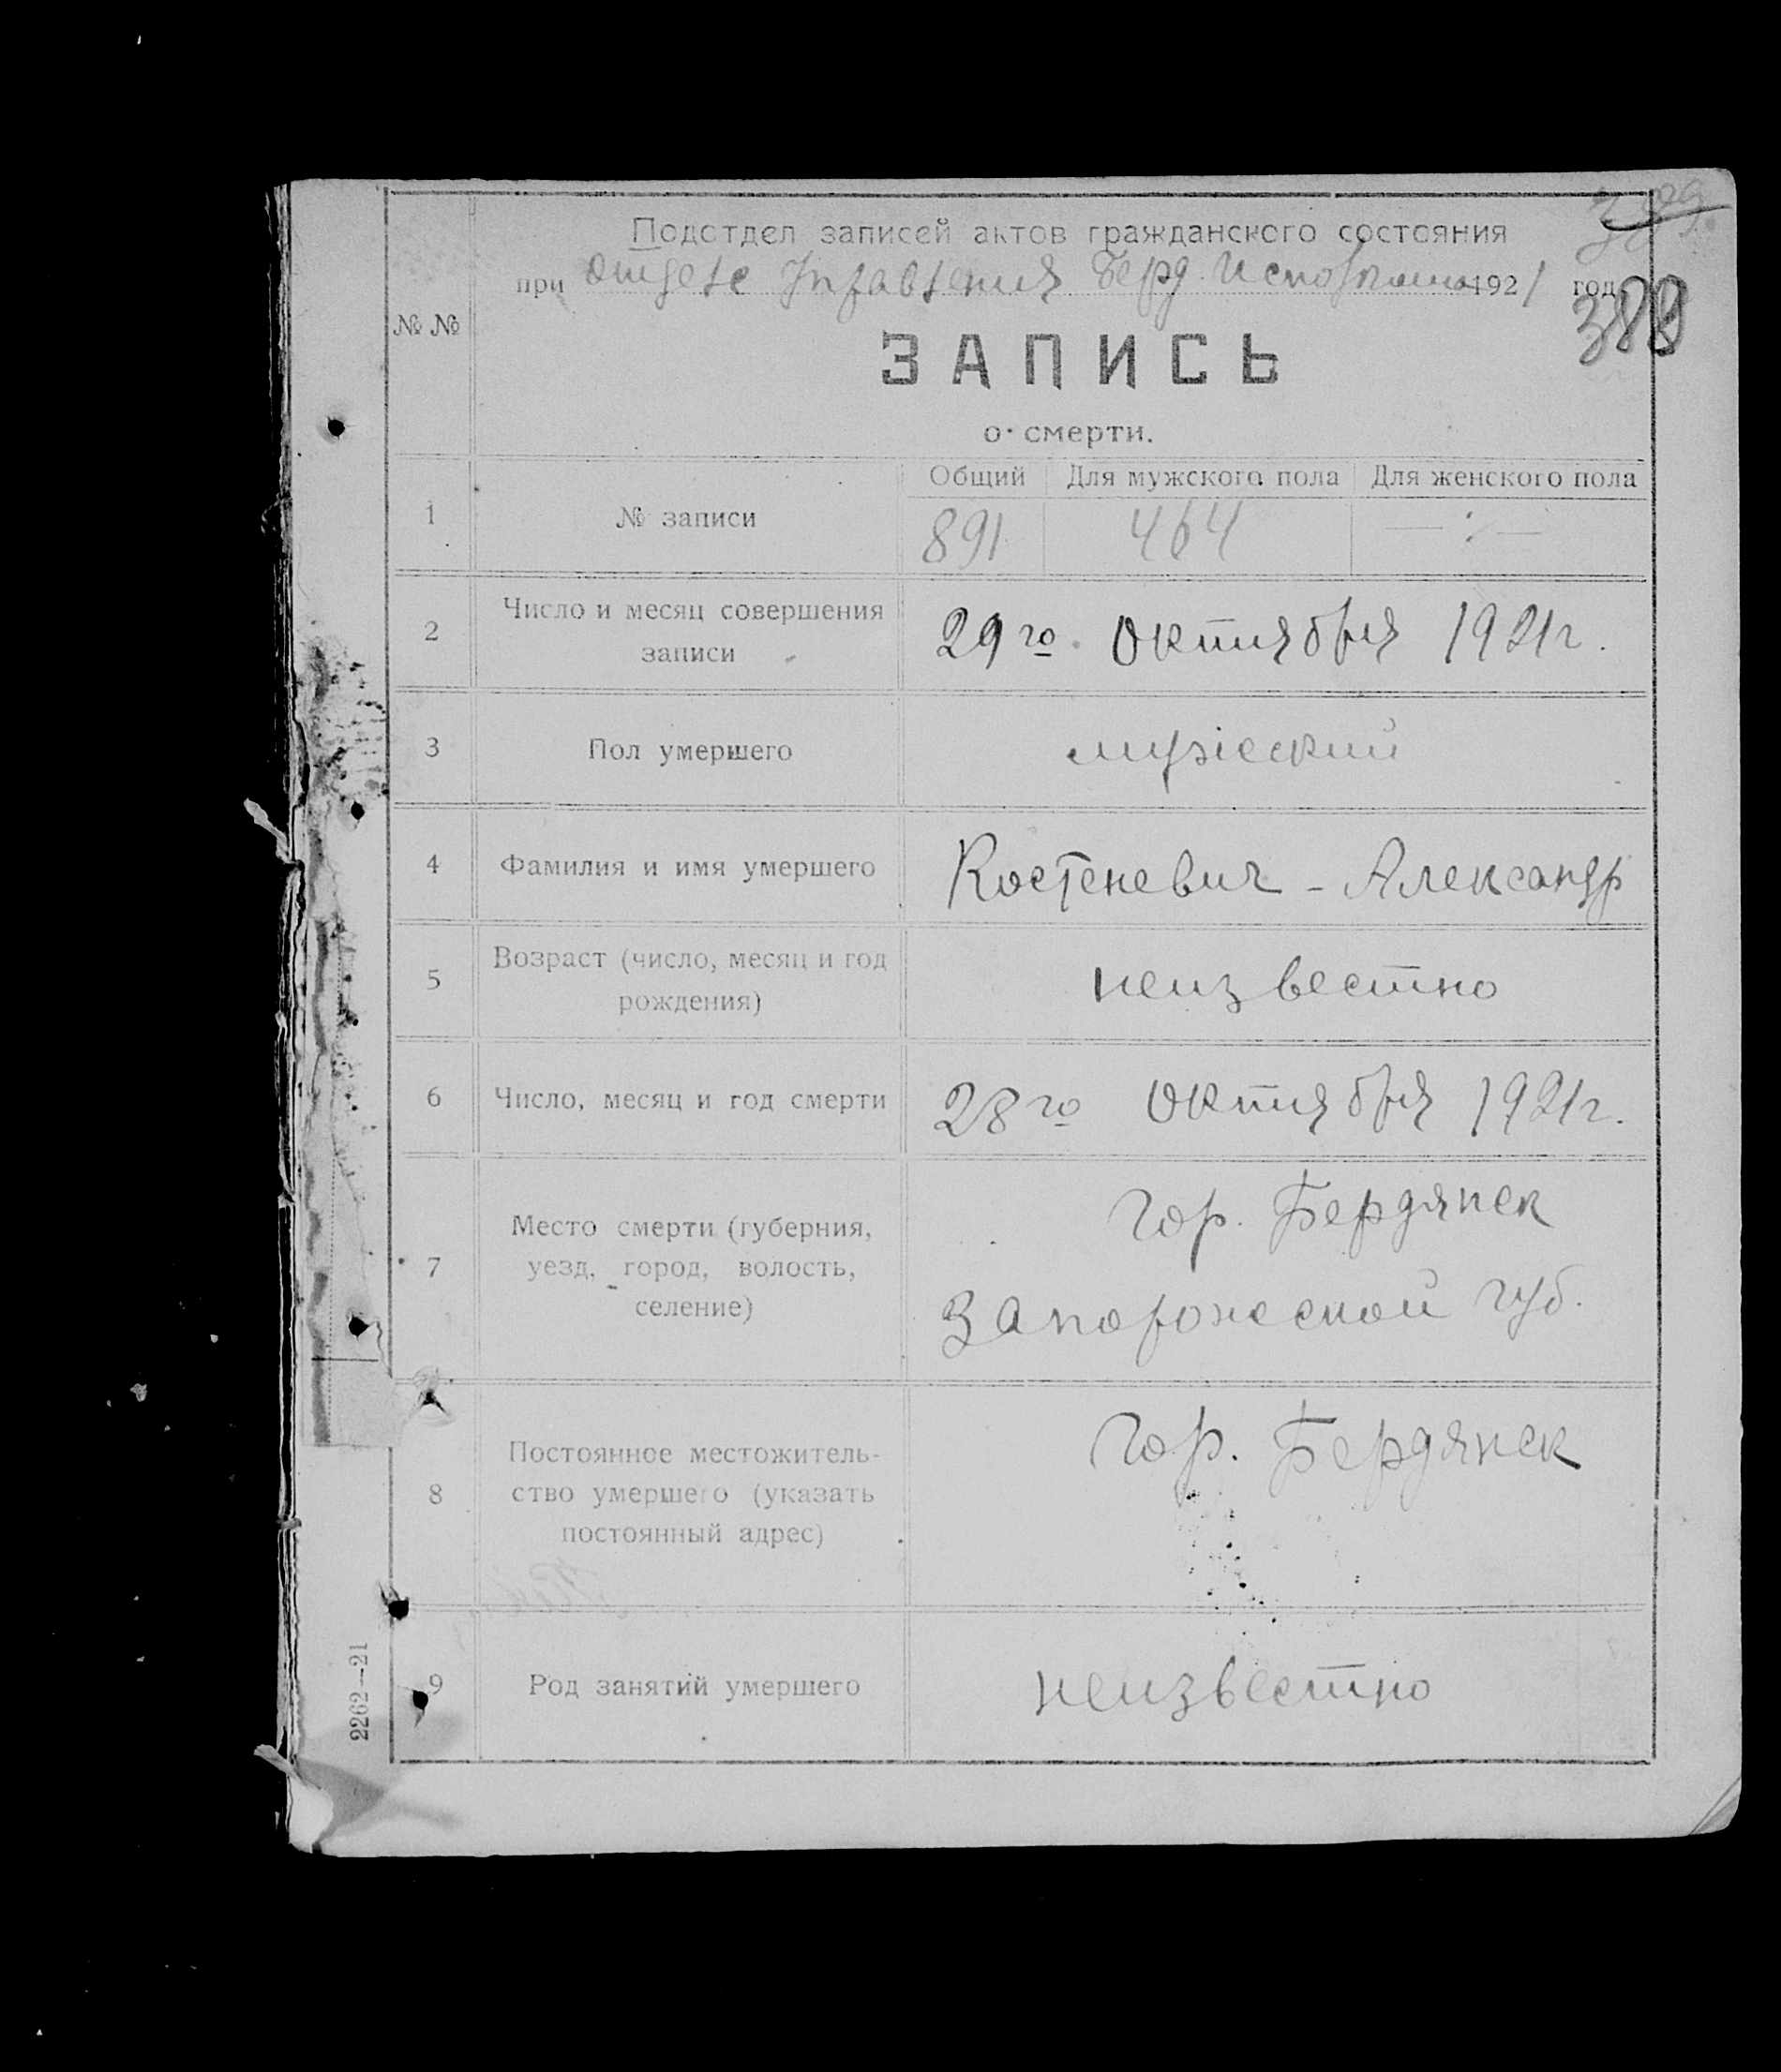 Подотдел записей актов гражданского состояния
при отделе Управления Берд. Исполкома 1921 год
389
№ №
ЗАПИСЬ
о смерти.
Общий Для мужского пола Для женского пола
1 № записи 891 464 — ⁒ —
2 Число и месяц совершения
записи
29го. Октября 1921г.
3 Пол умершего мужеский
4 Фамилия и имя умершего Костеневич - Александр
5 Возраст (число, месяц и год
рождения)
неизвестно
6 Число, месяц и год смерти 28го Октября 1921г.
7 Место смерти (губерния,
уезд, город, волость,
селение)
Гор. Бердянск
Запорожской губ.
8 Постоянное местожитель-
ство умершего (указать
постоянный адрес)
Гор. Бердянск
9 Род занятий умершего неизвестно
2262—21